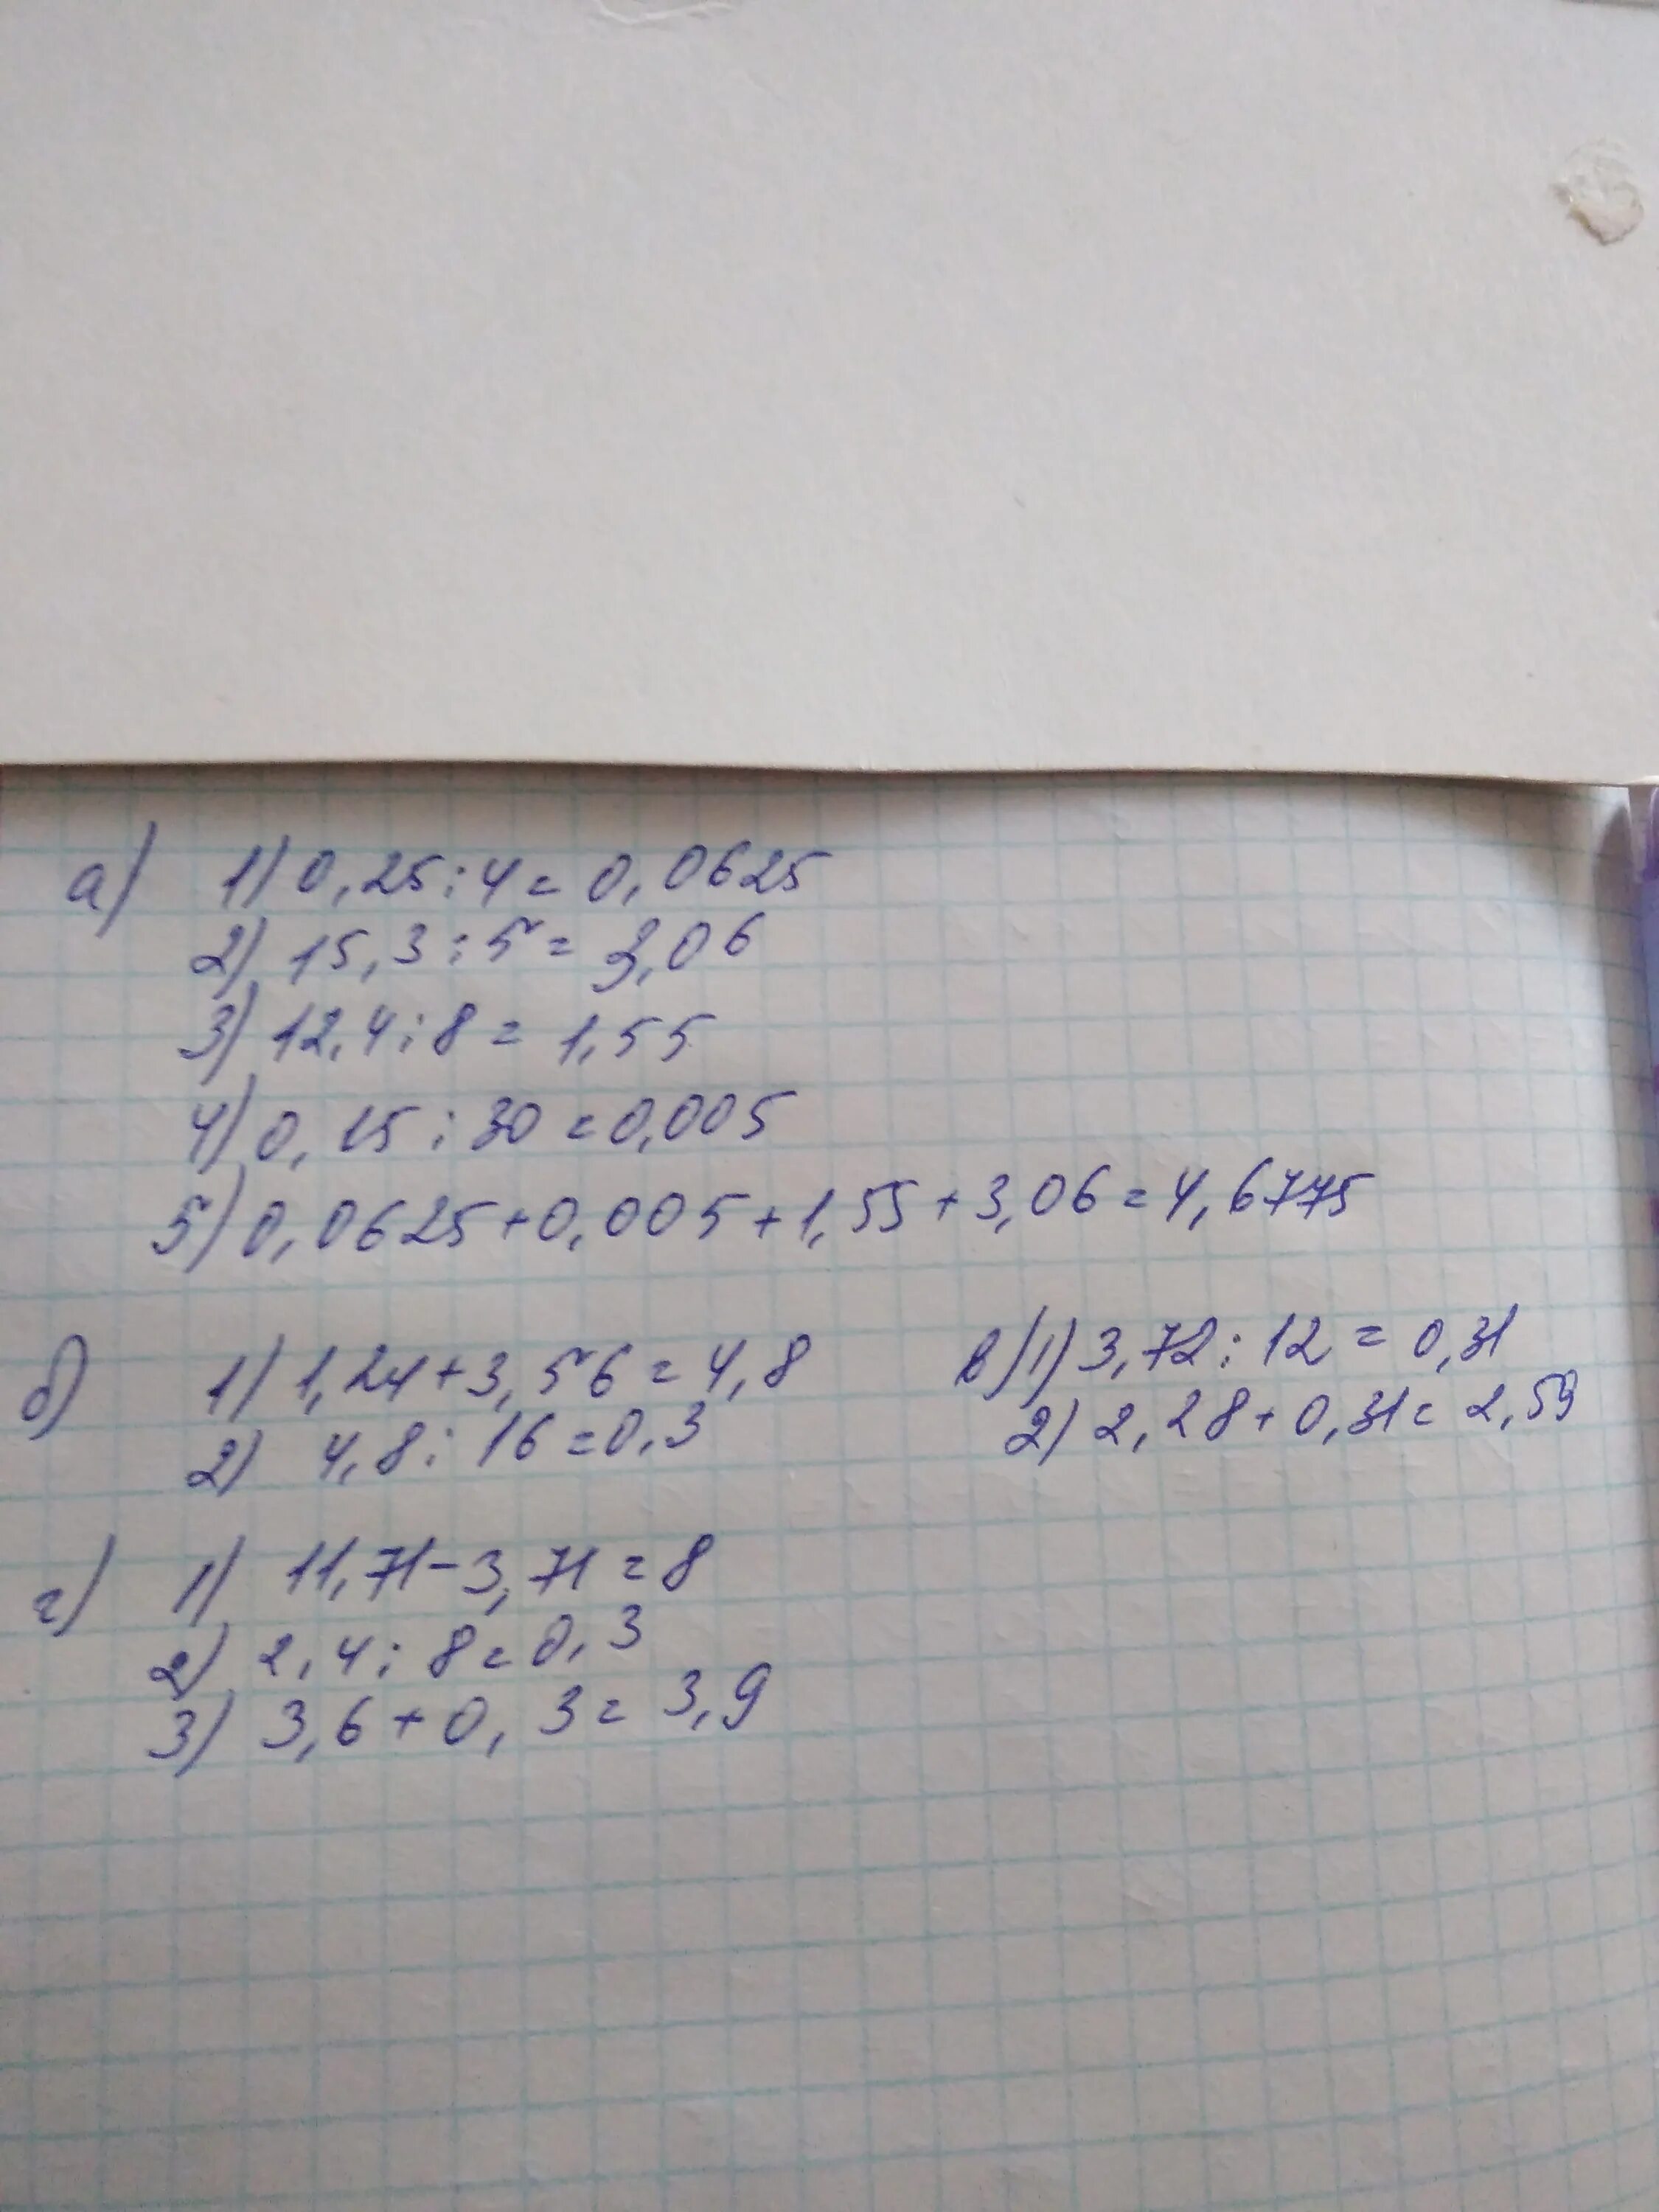 а) 1) 0,25:4=0,0625
2) 15,3:5=3,06
3) 12,4:8=1,55
4) 0,15:30=0,005
5) 0,0625+0,005+1,55+3,06=4,6775
б) 1) 1,24+3,56=4,8
2) 4,8:16=0,3
в) 1) 3,72:12=0,31
2) 2,28+0,31=2,59
г) 1) 11,71-3,71=8
2) 2,4:8=0,3
3) 3,6+0,3=3,9